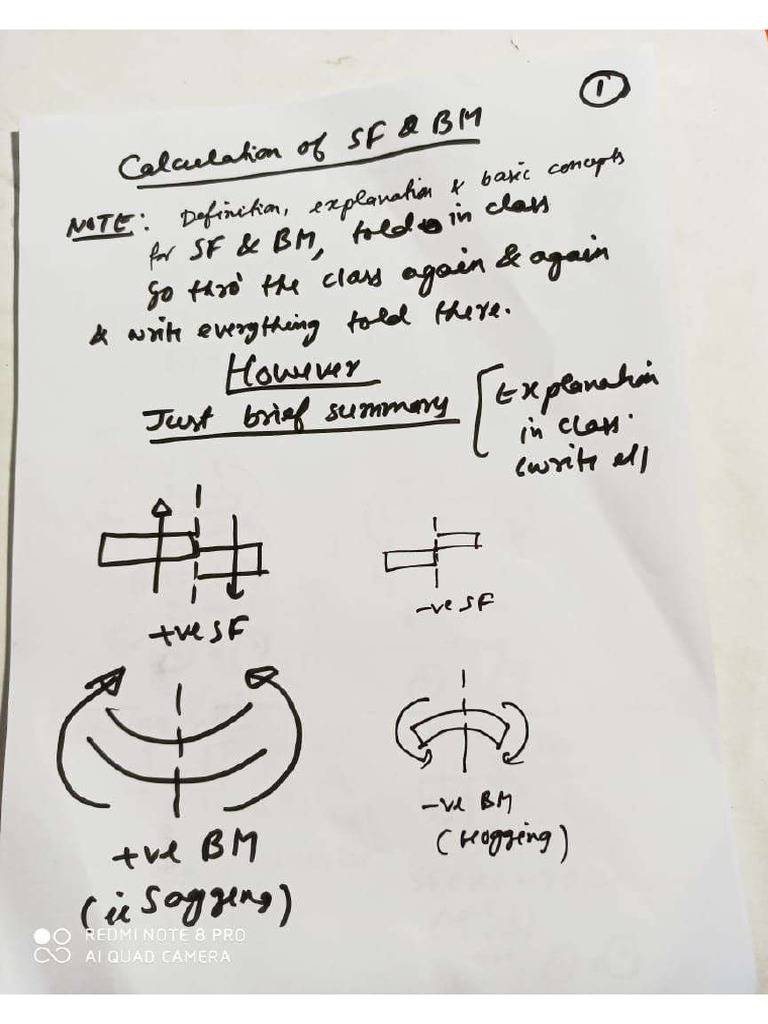 1
Calculation of SF & BM
NOTE: Definition, explanation & basic concepts
for SF & BM, told in class
Go thro' the class again & again
& write everything told there.
However
Just brief summary
Explanation
in class.
(write it)
+ve SF
-ve SF
+ve BM
(ie Sagging)
-ve BM
(Hogging)
REDMI NOTE 8 PRO
AI QUAD CAMERA